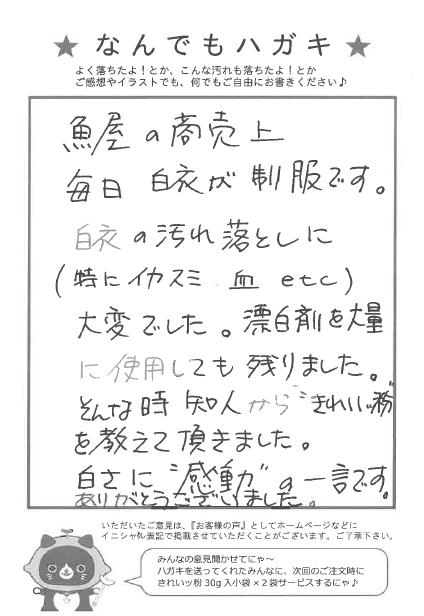 ★ なんでもハガキ ★
よく落ちたよ！とか、こんな汚れも落ちたよ！とか
ご感想やイラストでも、何でもご自由にお書きください♪
魚屋の商売上
毎日 白衣が制服です。
白衣の汚れ落としに
(特にイカスミ 血 etc)
大変でした。漂白剤を大量
に使用しても残りました。
そんな時 知人から"きれいッ粉"
を教えて頂きました。
白さに"感動"の一言です。
ありがとうございました。
いただいたご意見は、『お客様の声』としてホームページなどに
イニシャル表記で掲載させていただくことがございます。ご了承下さい。
みんなの意見聞かせてにゃ～
ハガキを送ってくれたみんなに、次回のご注文時に
きれいッ粉30g入小袋×2袋サービスするにゃ♪